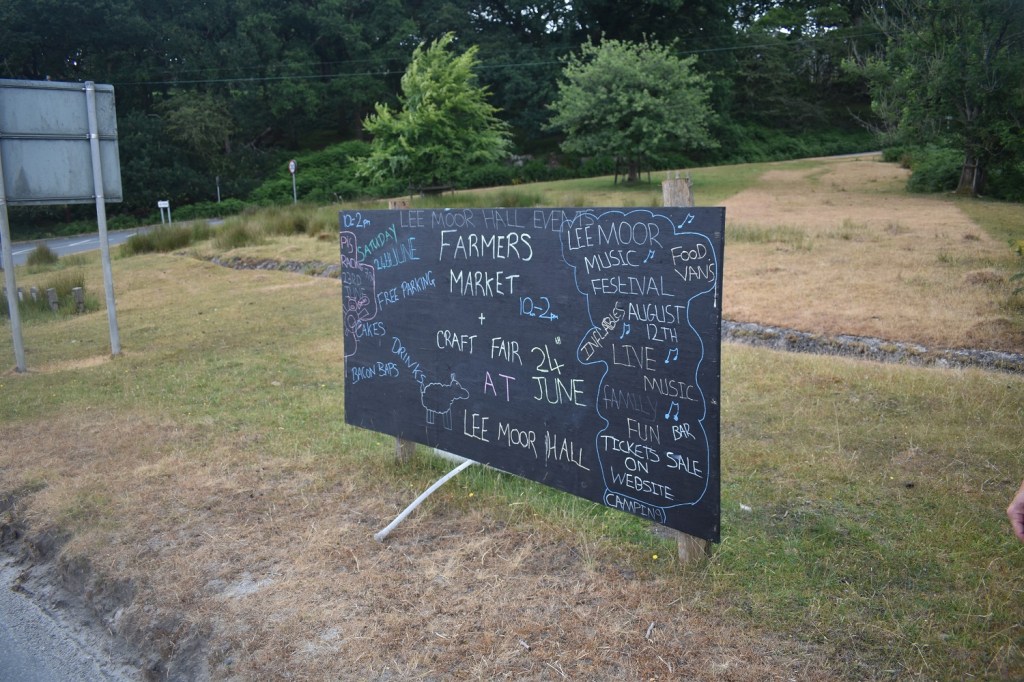 LEE MOOR HALL EVENTS
10-2pm
SATUDAY
24th JUNE
FREE PARKING
CAKES
DRINKS
BACON BAPS
FARMERS
MARKET
10-2pm
+
CRAFT FAIR 24th
AT JUNE
LEE MOOR HALL
LEE MOOR
MUSIC
FESTIVAL
FOOD
VANS
AUGUST
12TH
INFLABLES
LIVE
MUSIC
FAMILY
FUN
BAR
TICKETS SALE
ON
WEBSITE
CAMPING